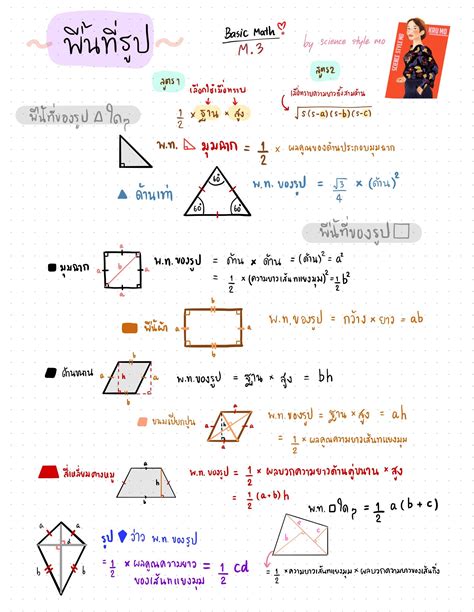 พื้นที่รูป
Basic Math
M.3
by science style mo
SCIENCE STYLE MO
KRU MO
สูตร 1
เลือกใช้เมื่อทราบ
1/2 × ฐาน × สูง
สูตร 2
เมื่อทราบความยาวทั้งสามด้าน
√s(s-a)(s-b)(s-c)
พื้นที่ของรูป △ ใดๆ
พ.ท. มุมฉาก = 1/2 × ผลคูณของด้านประกอบมุมฉาก
ด้านเท่า
60° 60° 60°
พ.ท. ของรูป = √3/4 × (ด้าน)²
พื้นที่ของรูป □
มุมฉาก
a a a a b
พ.ท. ของรูป = ด้าน × ด้าน = (ด้าน)² = a²
= 1/2 × (ความยาวเส้นทแยงมุม)² = 1/2 b²
ผืนผ้า
b a a b
พ.ท. ของรูป = กว้าง × ยาว = ab
ด้านขนาน
h b
พ.ท. ของรูป = ฐาน × สูง = bh
ขนมเปียกปูน
a
พ.ท. ของรูป = ฐาน × สูง = ah
= 1/2 × ผลคูณความยาวเส้นทแยงมุม
สี่เหลี่ยมคางหมู
a h b
พ.ท. ของรูป = 1/2 × ผลบวกความยาวด้านคู่ขนาน × สูง
= 1/2 (a+b) h
พ.ท. □ ใดๆ = 1/2 a (b + c)
a a b b c d
รูป ว่าว พ.ท. ของรูป
= 1/2 × ผลคูณความยาวของเส้นทแยงมุม = 1/2 cd
a b c
= 1/2 × ความยาวเส้นทแยงมุม × ผลบวกความยาวของเส้นกิ่ง